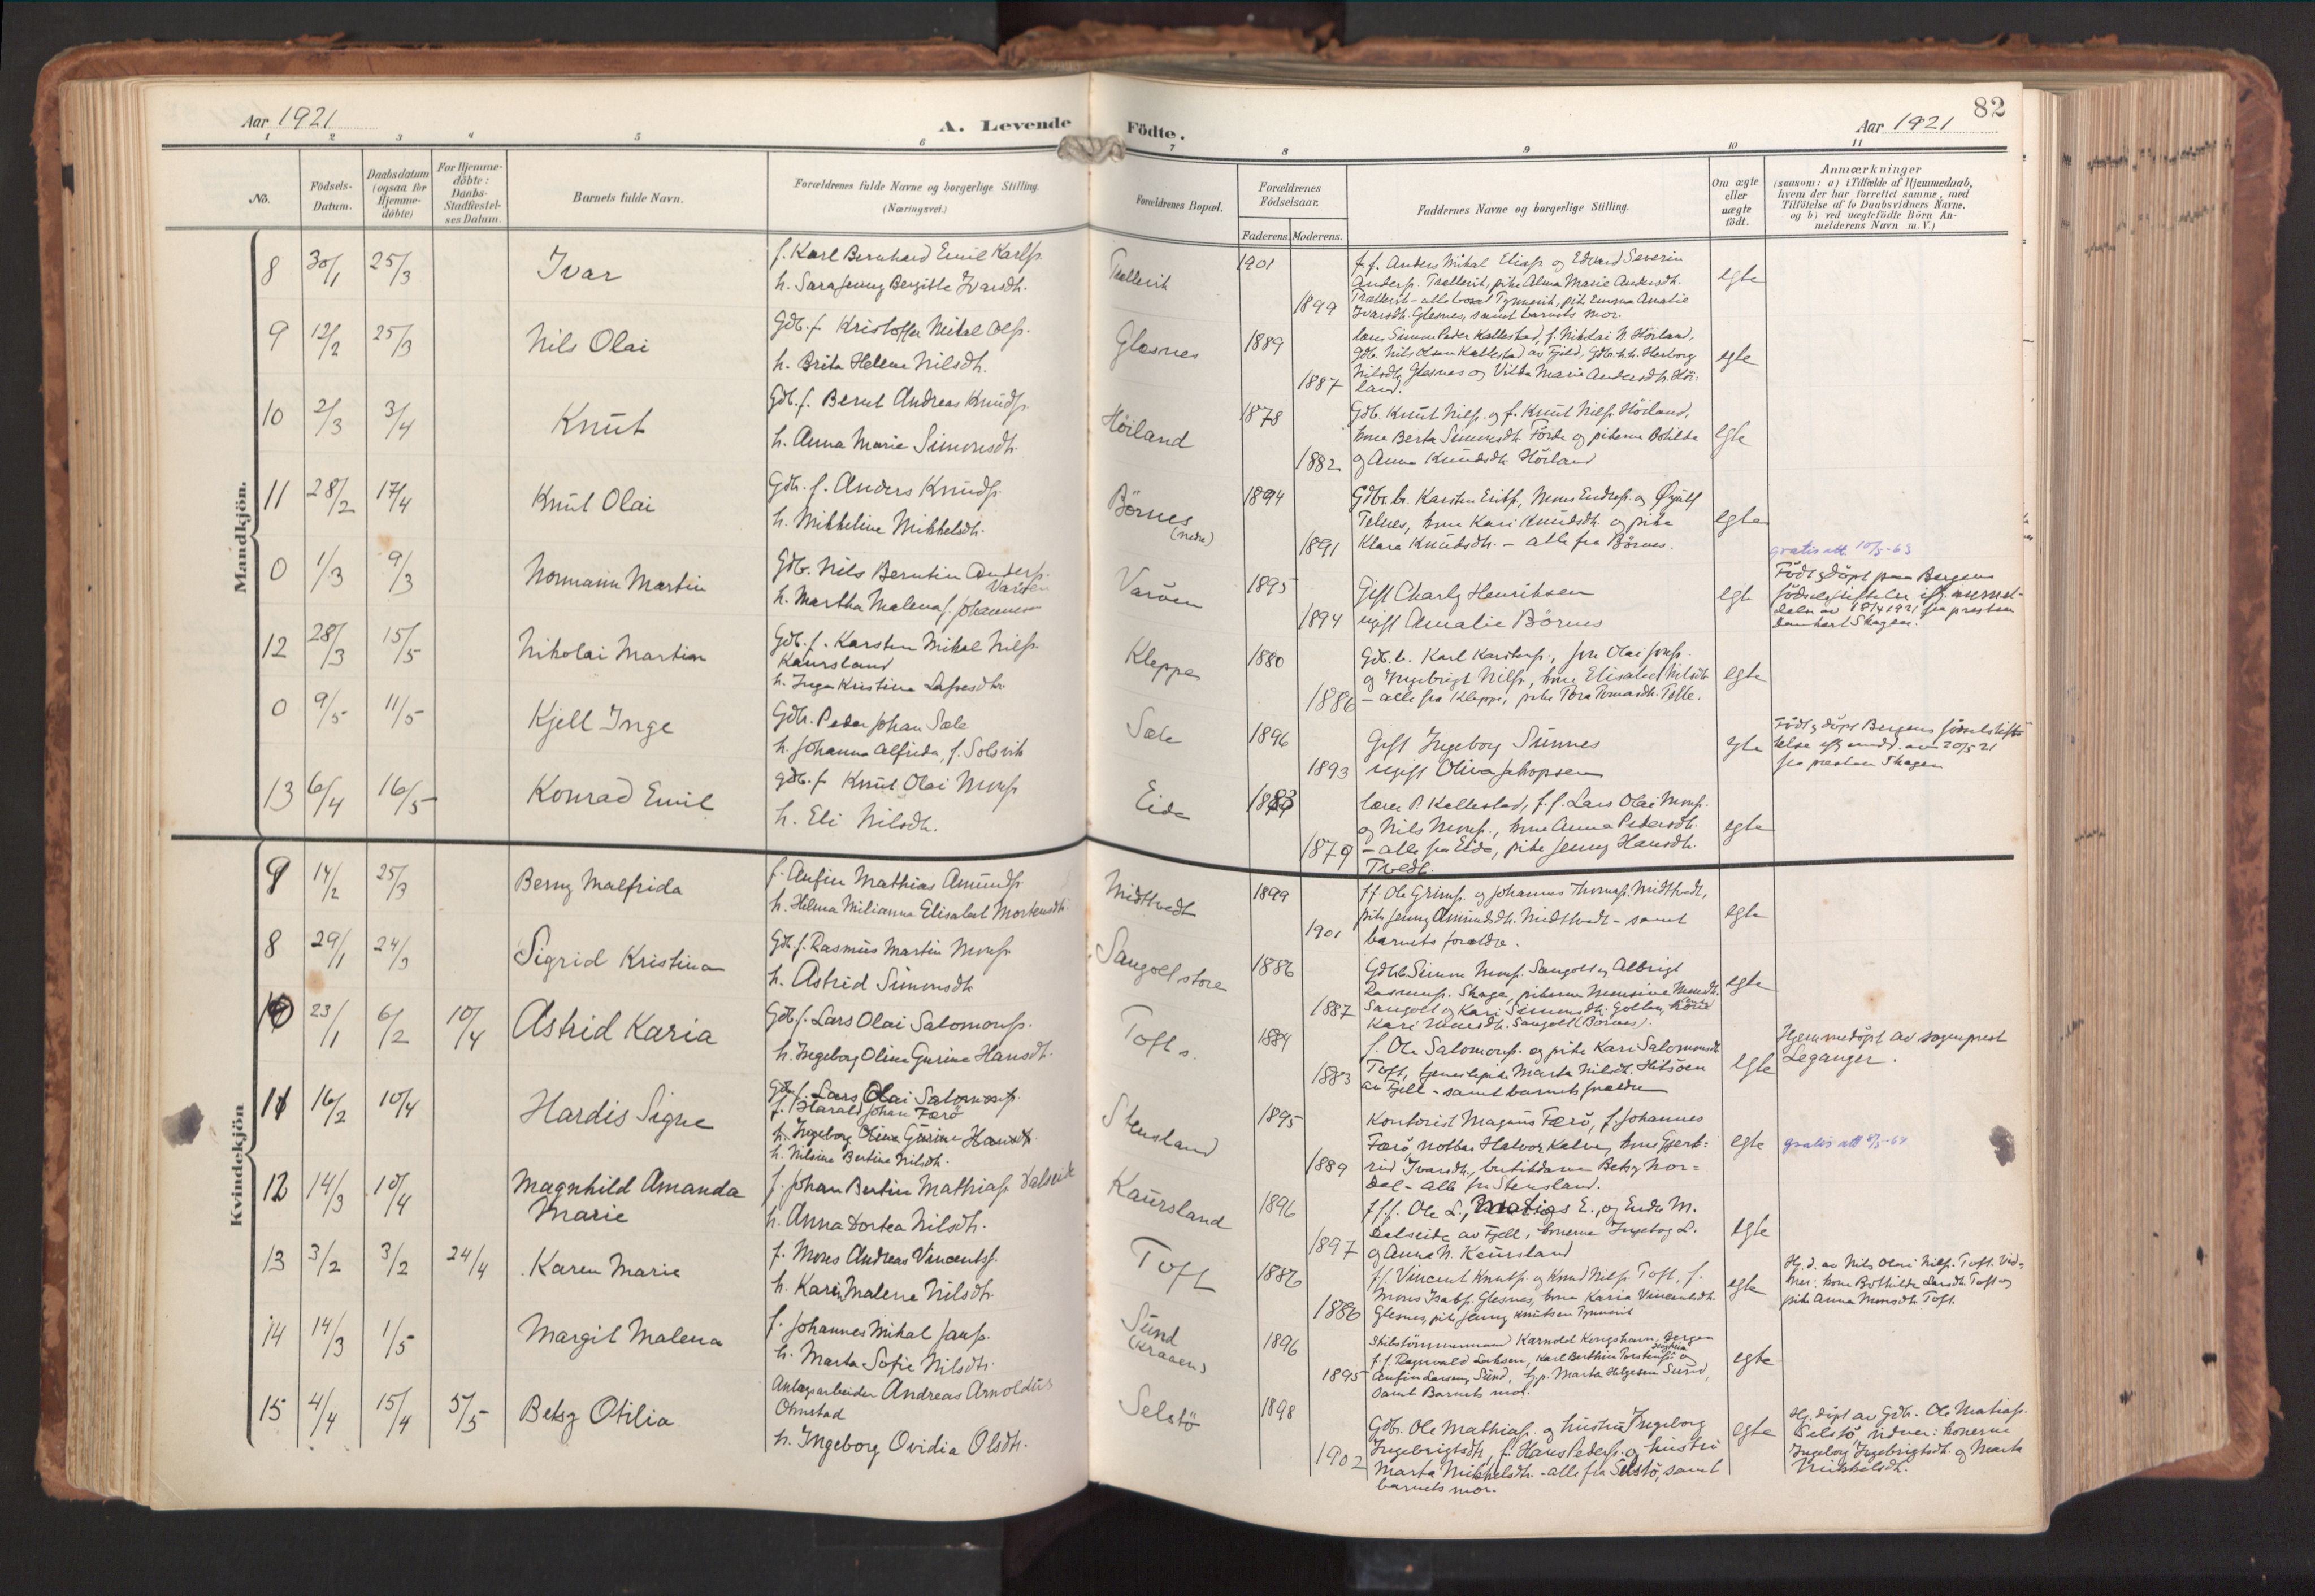 Aar 1921
A. Levende
Födte.
Aar 1921
82
1 2 3 4 5 6 7 8 9 10 11
No.
Födsels-Datum.
Daabsdatum (ogsaa för Hjemme-döbte)
For Hjemme-döbte: Daabs-Stadfæstel-ses Datum.
Barnets fulde Navn.
Forældrenes fulde Navne og borgerlige Stilling.
(Næringsvei.)
Forældrenes Bopæl.
Forældrenes Födselsaar.
Faderens. Moderens.
Faddernes Navne og borgerlige Stilling.
Om ægte eller uægte födt.
Anmærkninger
(saasom: a) i Tilfælde af Hjemmedaab,
hvem der har forrettet samme, med
Tilföielse af to Daabsvidners Navne,
og b) ved uægtefödte Börn An-
melderens Navn m. V.)
Mandkjön.
8 30/1 25/3 Ivar
f. Karl Bernhard Emil Karlss.
h. Sara Jenny Bergitte Ivarsdtr.
Trellevik 1901 1899
f.f. Anders Mikal Eliass. og Edvard Severin
Anderss. Trellevik, pike Alma Marie Andersdtr.
Ivarsdtr. Glesnes, samt barnets mor.
egte
9 12/2 25/3 Nils Olai
Gdb. f. Kristoffer Mikal Olss.
h. Brita Helene Nilsdtr.
Glesnes 1889 1887
lærer Simon Peder Kallestad, f. Nikolai N. Höiland,
Gdb. Nils Olsen Kallestad av Fjeld, Gdb. h.h. Herborg
Nilsdtr. Glesnes og Vilda Marie Andersdtr. Höi-
land.
egte
10 2/3 3/4 Knut
Gdb. f. Bernt Andreas Knudss.
h. Anna Marie Simonsdtr.
Höiland 1878 1882
Gdb. Knut Nilss. og f. Knut Nilss. Höiland,
kone Berta Simonsdtr. Förde og pikerne Botilda
og Anna Knudsdtr. Höiland
egte
11 28/2 17/4 Knut Olai
Gdb. f. Anders Knudss.
h. Mikkeline Mikkelsdtr.
Börnes
(nedre)
1894 1891
Gdbr. b. Karsten Erikss., Mons Endress. og Öyulf
Telnes, kone Kari Knudsdtr. og pike
Klara Knudsdtr. – alle fra Börnes.
egte
0 1/3 9/3 Normann Martin
Gdb. Nils Berntin Anderss.
Varöen
h. Martha Malena f. Johannessen
Varöen 1895 1894
Gift Charly Henriksen
ugift Amalie Börnes
egte
gratis att. 10/5-63
Födt og döpt paa Bergens
födselsstiftelse efter
av 18/4 1921 fra presten
Skagen.
12 28/3 15/5 Nikolai Martin
Gdb. f. Karsten Mikal Nilss.
Kaursland
h. Inga Kristina Lassesdtr.
Kleppe 1880 1886
Gdb. b. Karl Karstenss., Jon Olai Jonss.
og Ingebrigt Nilss., kone Elisabet Nilsdtr.
– alle fra Kleppe, pike Tora Tomasdtr. Telle.
egte
0 9/5 11/5 Kjell Inge
Gdb. Peder Johan Sæle
h. Johanna Alfrida, f. Solsvik
Sæle 1896 1893
Gift Ingeborg Sünnes
ugift Oliva Jakopsen
egte
Födt og döpt Bergens födselsstif-
telse efter medd. av 20/5 21
fra presten Skagen
13 6/4 16/5 Konrad Emil
gdb. f. Knut Olai Monss.
h. Eli Nilsdtr.
Eide 1883 1879
lærer P. Kallestad, f.f. Lars Olai Monss.
og Nils Monss., kone Anna Pedersdtr.
– alle fra Eide, pike Jenny Hansdtr.
Tvedt.
egte
Kvindekjön
9 14/2 25/3 Berny Malfrida
f. Anfin Mathias Amundss.
h. Hilma Milianna Elisabet Mortensdtr.
Midttvedt 1899 1901
f.f. Ole Grimss. og Johannes Thomass. Midttvedt,
pike Jenny Amundsdtr. Midttvedt – samt
barnets forældre.
egte
8 29/1 24/3 Sigrid Kristina
Gdb. f. Rasmus Martin Monss.
h. Astrid Simonsdtr.
Sangolt store 1886 1887
Gdbr. Simon Monss. Sangolt og Albrigt
Rasmuss. Skage, pikerne Monsine Monsdtr.
Sangolt og Kari Simonsdtr. Golten, kone
Kari Monsdtr. Sangolt (Börnes).
egte
10 23/1 6/2 10/4 Astrid Karia
Gdb. f. Lars Olai Salomonss.
h. Ingeborg Olina Gurine Hansdtr.
Toft s. 1884 1883
f. Ole Salomonss. og pike Kari Salomonsdtr.
Toft, tjenestepike Marta Nilsdtr. Hitsöen
av Fjell – samt barnets foreldre
egte
Hjemmedöpt av sogneprest
Leganger.
11 16/2 10/4 Hardis Signe
Gdb. f. Lars Olai Salomonss.
f. Harald Johan Færö
h. Ingeborg Olina Gurine Hansdtr.
h. Nilsine Bertine Nilsdtr.
Stensland 1895 1889
Kontorist Magnus Færö, f. Johannes
Færö, notbas Halvor Kalve, kone Gjert-
rud Ivarsdtr., butikdame Betsy Nor-
dal – alle fra Stensland.
egte
12 14/3 10/4 Magnhild Amanda
Marie
f. Johan Bertin Mathiass. Dalseide
h. Anna Dortea Nilsdtr.
Kaursland 1896 1897
f.f.f. Ole L., Matias E., og Endre M.
Dalseide av Fjell, konerne Ingeborg L.
og Anna N. Kaursland
egte
13 3/2 3/2 24/4 Karen Marie
f. Mons Andreas Vincentss.
h. Kari Malene Nilsdtr.
Toft 1886 1886
f.f. Vincent Knutss. og Knud Nilss. Toft, f.
Mons Isakss. Glesnes, kone Karia Vincentsdtr.
Glesnes, pike Jenny Knutsen Tynnevik
egte
Hj. d. av Nils Olai Nilss. Toft. Vid-
ner: kone Bothilde Larsdtr. Toft og
pike Anna Monsdtr. Toft.
14 14/3 1/5 Margit Malena
f. Johannes Mikal Janss.
h. Marta Sofie Nilsdtr.
Sund
(Kraaen)
1896 1895
Skibstömmermand Karnold Kongshavn, Bergen
Anfin Larsen, Sund, Marta Helgesen Sund,
samt Barnets mor.
egte
15 4/4 15/4 5/5 Betsy Otilia
Anlægsarbeider Andreas Arnoldus
Olmstad
h. Ingeborg Ovidia Olsdtr.
Selstö 1898 1902
Gdbr. Ole Mathiass. og hustru Ingeborg
Ingebrigtsdtr., f. Hans Pederss. og hustru
Marta Mikkelsdtr. – alle fra Selstö, samt
barnets mor.
egte
Hj. döpt av Gdb. Ole Matiass.
Selstö vidner: konerne
Ingeborg Ingebrigtsdtr. og Marta
Mikkelsdtr.